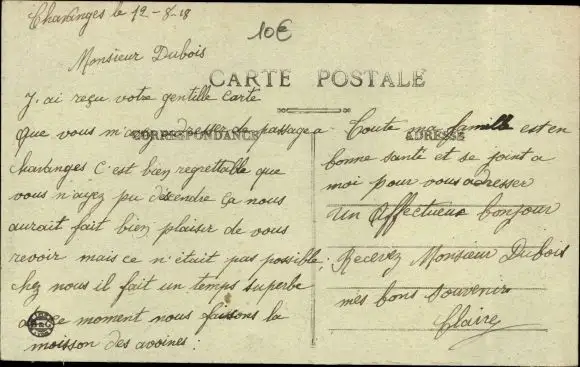 Chavanges le 12-8-18
10€
Monsieur Dubois
CARTE POSTALE
J'ai reçu votre gentille carte
que vous m'avez adressez de passage a
CORRESPONDANCE
chavanges c'est bien regrettable que
vous n'ayez pu déscendre ça nous
aurait fait bien plaisir de vous
revoir mais ce n'était pas possible;
chez nous il fait un temps superbe
ce moment nous faisons la
moisson des avoines:
ADRESSE
Toute ma famille est en
bonne santé et se joint a
moi pour vous adresser
un affectueux bonjour
Recevez Monsieur Dubois
mes bons souvenirs
Claire